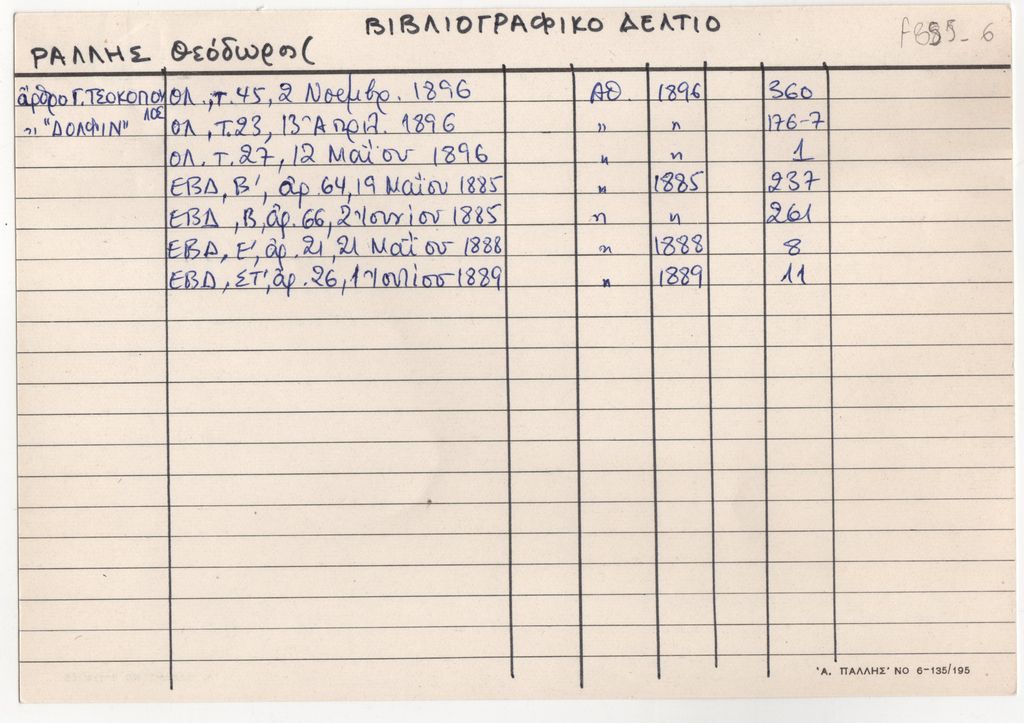 ΒΙΒΛΙΟΓΡΑΦΙΚΟ ΔΕΛΤΙΟ
ΡΑΛΛΗΣ Θεόδωρος (
ἄρθρο Γ. ΤΣΟΚΟΠΟΥΛΟΣ ΟΛ., τ. 45, 2 Νοεμβρ. 1896 ΑΘ. 1896 360
" "ΔΟΛΦΙΝ" ΟΛ, Τ. 23, 13 Ἀπριλ. 1896 " " 176-7
ΟΛ. Τ. 27, 12 Μαΐου 1896 " " 1
ΕΒΔ, Β', ἀρ. 64, 19 Μαΐου 1885 " 1885 237
ΕΒΔ, Β, ἀρ. 66, 2 Ἰουνίου 1885 " " 261
ΕΒΔ, Ε', ἀρ. 21, 21 Μαΐου 1888 " 1888 8
ΕΒΔ, ΣΤ', ἀρ. 26, 1 Ἰουλίου 1889 " 1889 11
'Α. ΠΑΛΛΗΣ' ΝΟ 6-135/195